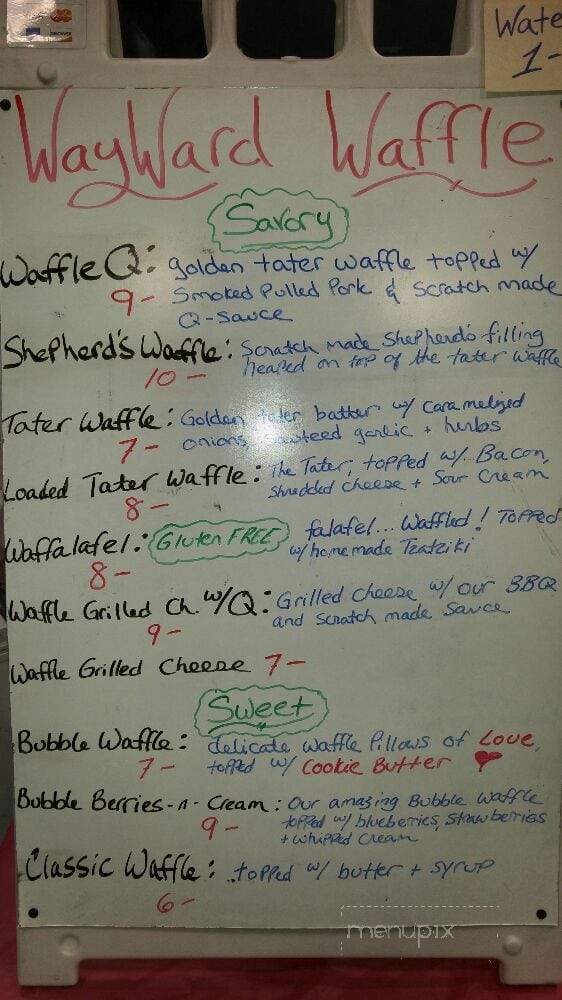 Wate
1-
WayWard Waffle
Savory
Waffle Q: golden tater waffle topped w/
9- Smoked Pulled Pork & Scratch made
Q-Sauce
Shepherd's Waffle: Scratch made Shepherd's filling
10 - heaped on top of the tater waffle
Tater Waffle: Golden tater batter w/ caramelized
7- onions, sauteed garlic + herbs
Loaded Tater Waffle: The Tater, topped w/ Bacon,
8- shredded cheese + Sour Cream
Waffalafel: Gluten FREE falafel... Waffled! Topped
8- w/homemade Tzatziki
Waffle Grilled Ch. w/Q: Grilled Cheese w/ our BBQ
9- and scratch made sauce
Waffle Grilled Cheese 7-
Sweet
Bubble Waffle: delicate waffle Pillows of Love,
7- topped w/ Cookie Butter ♥
Bubble Berries-n-Cream: Our amazing Bubble waffle
9- topped w/ blueberries, strawberries
+ whipped cream
Classic Waffle: topped w/ butter + syrup
6-
menupix